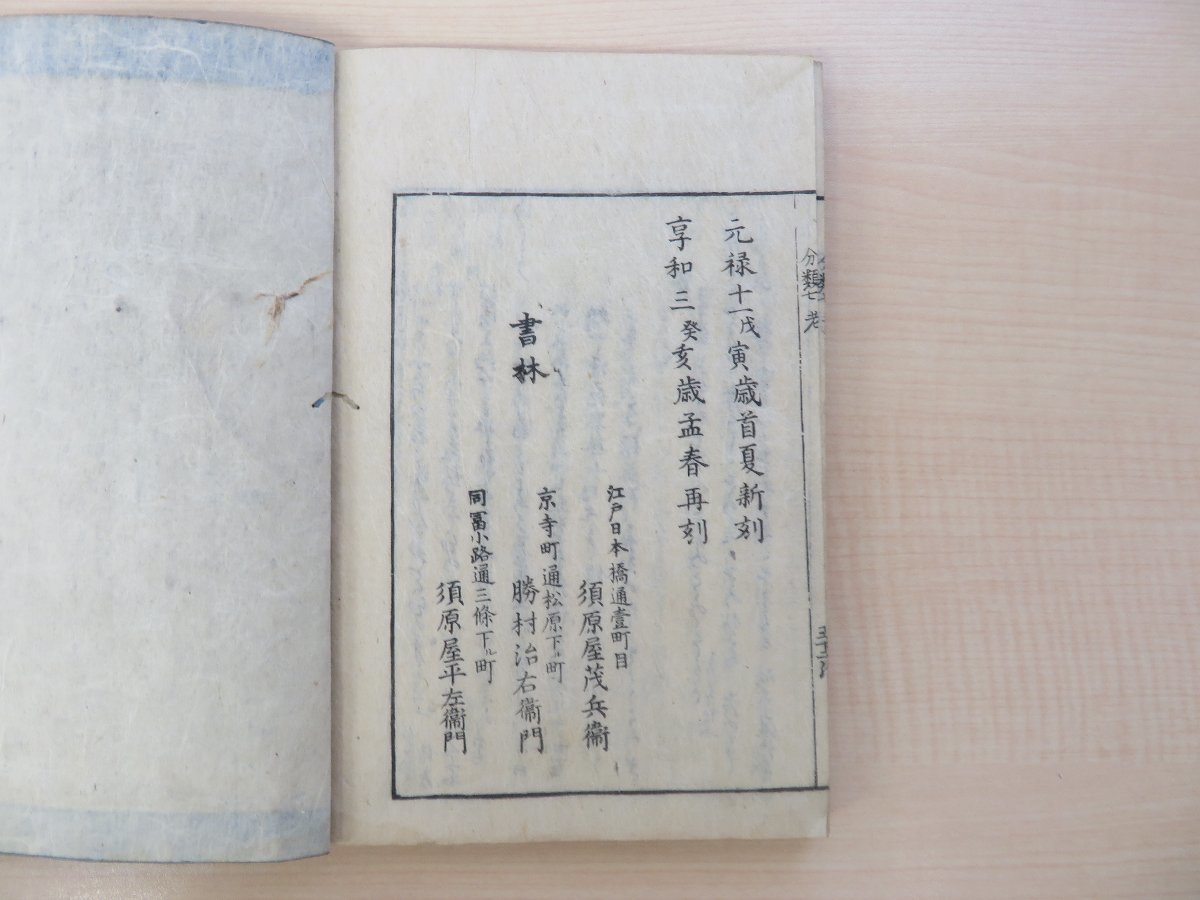 元禄十一戊寅歳首夏新刻
享和三癸亥歳孟春再刻
書林
江戸日本橋通壹町目
須原屋茂兵衞
京寺町通松原下ル町
勝村治右衞門
同冨小路通三條下ル町
須原屋平左衞門
分類